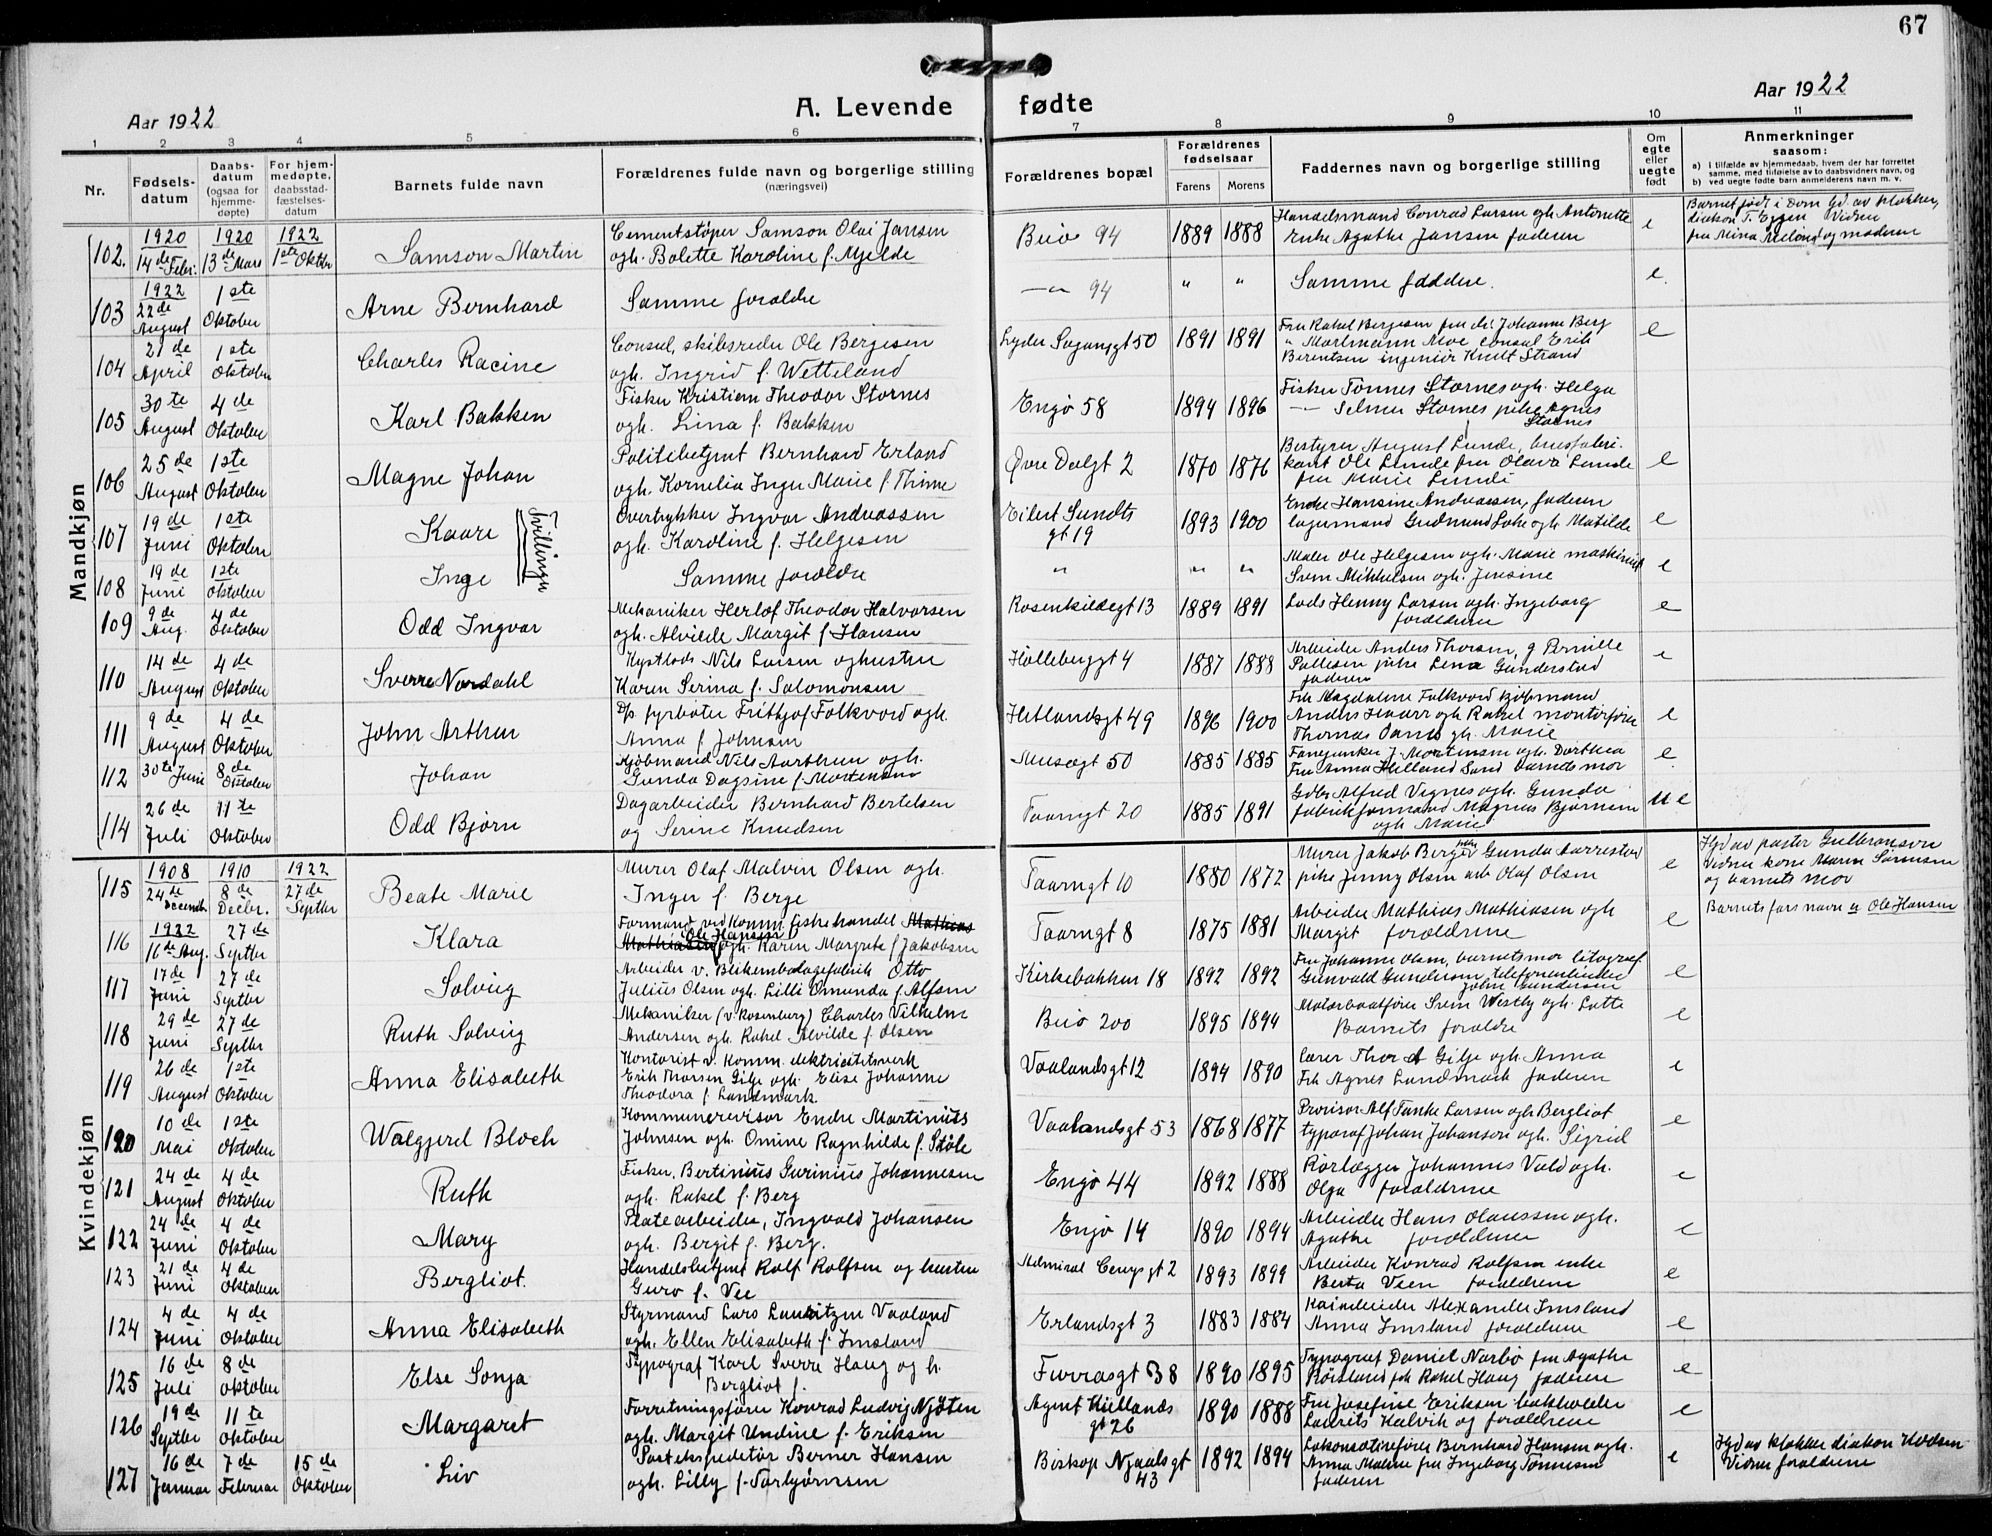 67
Aar 1922
A. Levende
fødte
Aar 1922
1 2 3 4 5 6 7 8 9 10 11
Nr.
Fødsels-
datum
Daabs-
datum
(ogsaa for
hjemme-
døpte)
For hjem-
medøpte,
daabsstad-
fæstelses-
datum
Barnets fulde navn
Forældrenes fulde navn og borgerlige stilling
(næringsvei)
Forældrenes bopæl
Forældrenes
fødselsaar
Farens Morens
Faddernes navn og borgerlige stilling
Om
egte
eller
uegte
født
Anmerkninger
saasom:
a) i tilfælde av hjemmedaab, hvem der har forrettet
samme, med tilføielse av to daabsvidners navn, og
b) ved uegte fødte barn anmelderens navn m. v.
Mandkjøn
102. 1920 14de Febr. 1920 13de Mars 1922 1ste Oktbr Samson Martin
Cementstøper Samson Olai Jansen
ogh. Bolette Karoline f. Mjelde
Buø 94 1889 1888
Handelsmand Conrad Larsen ogh Antonette
Enke Agathe Jansen faderen
e
Barnet født i Dom Gd. av klokker,
diakon T. Eggen Vidner
fru Mina Meland og moderen
103 1922 22de August 1ste Oktober Arne Bernhard
Samme forældre
—"— 94 " "
Samme faddere.
e.
104 21de April 1ste Oktober Charles Racine
Consul, skibsreder Ole Bergesen
ogh. Ingrid f. Wetteland
Lyder Sagensgt 50 1891 1891
Fru Rakel Bergesen fru dr. Johanne Berg
" Martmann Moe consul Erik
Berentsen ingeniør Knut Strand
e
105 30te August 4de Oktober Karl Bakken
Fisker Kristian Theodor Stornes
ogh. Lina f. Bakken
Engø 58 1894 1896
Fisker Tønnes Stornes ogh. Helga
—"— Selmer Stornes pike Agnes
Stornes
106 25de August 1ste Oktober Magne Johan
Politibetjent Bernhard Erland
ogh. Kornelia Inger Marie f. Thime
Øvre Dalgt 2 1870 1876
Bestyrer August Lunde, brusfabri-
kant Ole Lunde fru Olava Lunde
fru Marie Lunde
e
107 19de Juni 1ste Oktober Kaare
Tvillinger
Overtrykker Ingvar Andreassen
ogh. Karoline f. Helgesen
Eilert Sundts
gt 19 1893 1900
Enke Hansine Andreassen, faderen
lagermand Gudmund Loke ogh Matilde
e
108 19de Juni 1ste Oktober Inge
Samme forældre
" " "
Maler Ole Helgesen ogh. Marie maskinist
Sven Mikkelsen ogh. Jensine
e
109 9de Aug. 4de Oktober Odd Ingvar
Mekaniker Herlof Theodor Halvorsen
ogh. Alvilde Margit f. Hansen
Rosenkildegt 13 1889 1891
Lods Henny Larsen ogh. Ingeborg
forældrene
e
110 14de August 4de Oktober Sverre Nordahl
Kystlods Nils Larsen og hustru
Karen Serina f. Salomonsen
Holleberggt 4 1887 1888
Arbeider Anders Thorsen, g Pernille
Pallesen pike Lena Gunderstad
faderen
e
111 9de August 4de Oktober John Arthur
D/s fyrbøter Frithjof Folkvord ogh.
Anna f Johnsen
Hetlandsgt 49 1896 1900
Frk Magdalene Folkvord kjøbmand
Anders Haarr ogh Rakel montørfører
Thomas Dand gh. Marie
e
112 30te Juni 8de Oktober Johan
Kjøbmand Nils Aarthun ogh.
Gunda Dagsine f. Mortensen
Musegt 50 1885 1885
Fanejunker J. Mortensen ogh. Dorthea
Fru Anna Helland Sand barnets mor
e.
114 26de Juli 11te Oktober Odd Bjørn
Dagarbeider Bernhard Bertelsen
og Serine Knudsen
Taarngt 20 1885 1891
Gdbr Alfred Vignes ogh. Gunda
fabrikformand Magnus Bjørnsen
ogh Marie
u e
Kvindekjøn
115 1908 24de Decembr. 1910 8de Decbr. 1922 27de Septbr Beate Marie
Murer Olaf Malvin Olsen ogh.
Inger f. Berge
Taarngt 10 1880 1872
Murer Jakob Berge pike Gunda Aarrestad
pike Jenny Olsen arb Olaf Olsen
e
Hjd av pastor Gulbransen
Vidner kone Maren Sørensen
og barnets mor
116 1922 16de Aug. 27de Septbr Klara
Formand ved Komm. fiskehandel Mathias
Mathiasen Ole Hansen ogh. Karen Margrete f Jakobsen
Taarngt 8 1875 1881
Arbeider Mathias Mathiasen ogh
Margit forældrene
e
Barnets fars navn er Ole Hansen
117 17de Juni 27de Septbr Solveig
Arbeider v. Blikemballagefabrik Otto
Julius Olsen ogh. Lilli Omunda f Alfsen
Kirkebakken 18 1892 1892
Fru Johanne Olsen, barnets mor litograf
Gunvald Gundersen telefonarbeider
John Gundersen
e
118 29de Juni 27de Septbr Ruth Solveig
Mekaniker (v. Rosenberg) Charles Vilhelm
Andersen ogh. Rakel Alvilde f. Olsen
Buø 200 1895 1894
Motorbaatfører Sven Westby ogh. Lotte
Barnets forældre
e
119 26de August 1ste Oktober Anna Elisabeth
Kontorist v. Komm. elektricitetsverk
Erik Thorsen Gilje ogh. Elise Johanne
Theodora f Landmark
Vaalandsgt 12 1894 1890
Lærer Thor A Gilje ogh Anna
Frk Agnes Landmark faderen
e
120 10de Mai 1ste Oktober Walgjerd Bloch
Kommunerevisor Endre Martinius
Johnsen ogh. Omine Ragnhilde f. Støle
Vaalandsgt 53 1868 1877
Provisor Alf Tanke Larsen ogh Bergliot
typograf Johan Johansen ogh. Sigrid
e
121 24de August 4de Oktober Ruth
Fisker, Bertinius Gurinius Johannesen
ogh. Rakel f. Berg
Engø 44 1892 1888
Rørlægger Johannes Vold ogh.
Olga forældrene
e
122 24de Juni 4de Oktober Mary
Platearbeider, Ingvald Johansen
ogh. Bergit f. Berg.
Engø 14 1890 1894
Arbeider Hans Olaussen ogh.
Agathe forældrene
e
123 21de Juni 4de Oktober Bergliot.
Handelsbetjent Rolf Rolfsen og hustru
Guro f. Vee
Admiral Cruys gt 2 1893 1899
Arbeider Konrad Rolfsen enke
Berta Veen forældrene
e
124 4de Juni 4de Oktober Anna Elisabeth
Styrmand Lars Lauritzen Vaaland
ogh. Ellen Elisabeth f. Imsland
Erlandsgt 3 1883 1884
Kaiarbeider Alexander Imsland
Anna Imsland forældrene
e
125 16de Juli 8de Oktober Else Sonja
Typograf Karl Sverre Haug og h.
Bergliot f.
Furrasgt 38 1890 1895
Typograf Daniel Nærbø fru Agathe
Rørsland frk Rakel Haug faderen
e
126 19de Septbr 11te Oktober Margaret
Forretningsfører Konrad Ludvig Njøten
ogh. Margit Undine f. Eriksen
Agent Kiellands
gt 26 1890 1888
Fru Josefine Eriksen bokholder
Laurits Kalvik og forældrene
e
127 16de Januar 7de Februar 15de Oktober Liv
Postekspeditør Berner Hansen
ogh. Lilly f. Torbjørnsen
Biskop Njaalsgt
43 1892 1894
Lokomotivfører Bernhard Hansen ogh.
Anna Malene fru Ingeborg Tønnesen
faderen
e
Hjd av klokker diakon Kodsen
Vidner forældrene